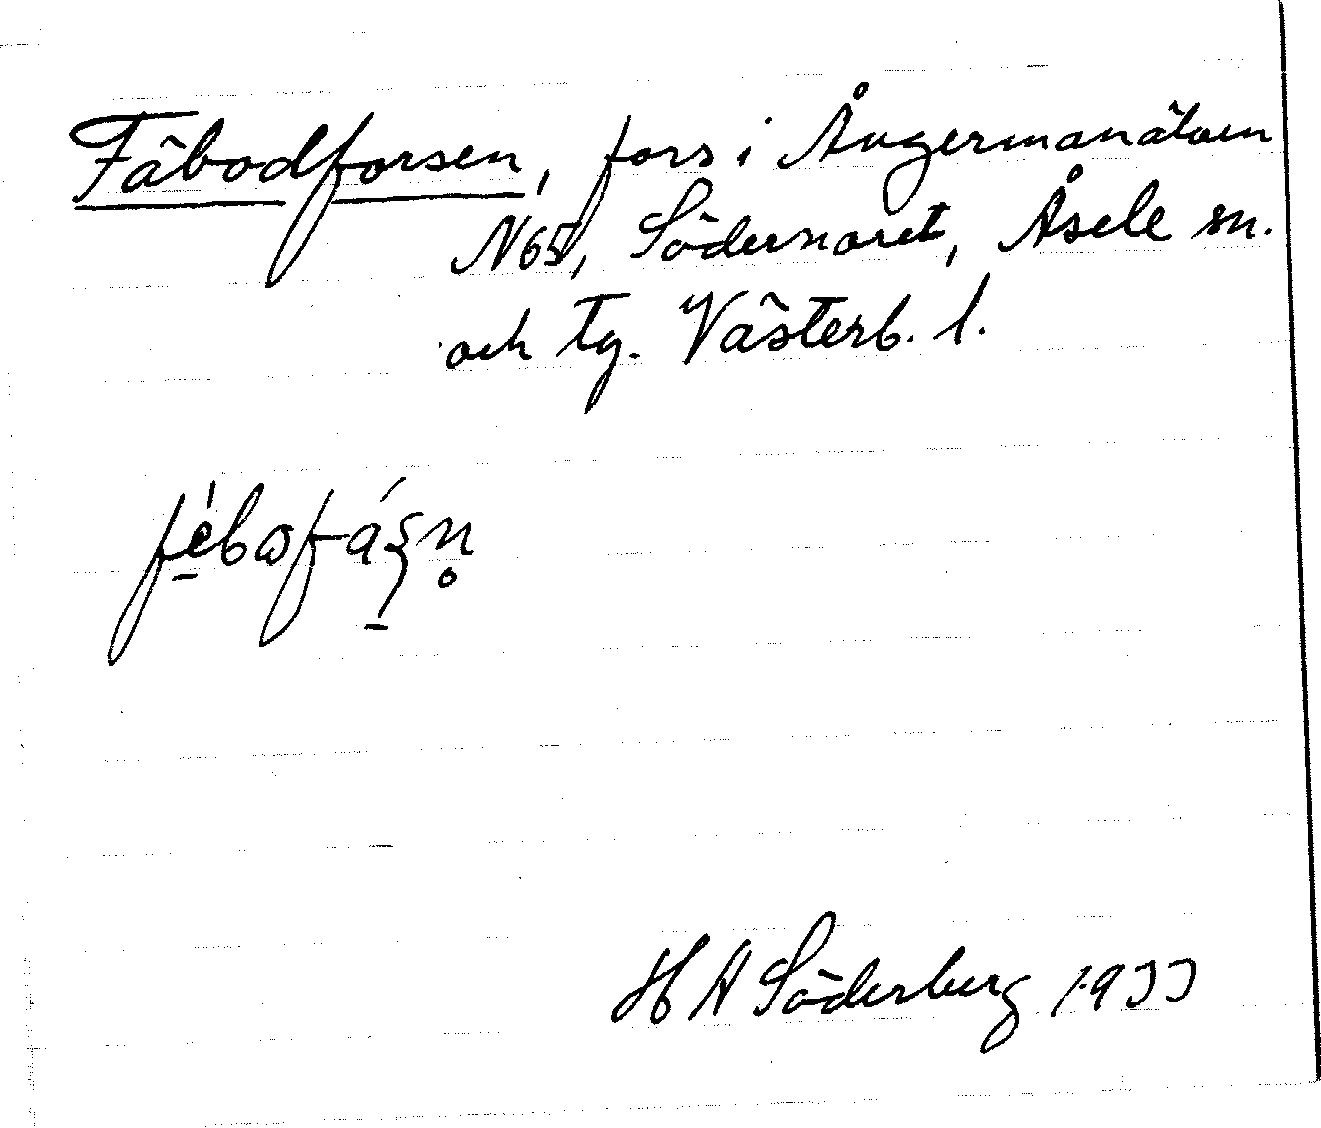 Fäbodforsen, fors i Ångermanälven
N65, Södernoret, Åsele sn.
och tg. Västerb. l.
H A Söderberg 1933